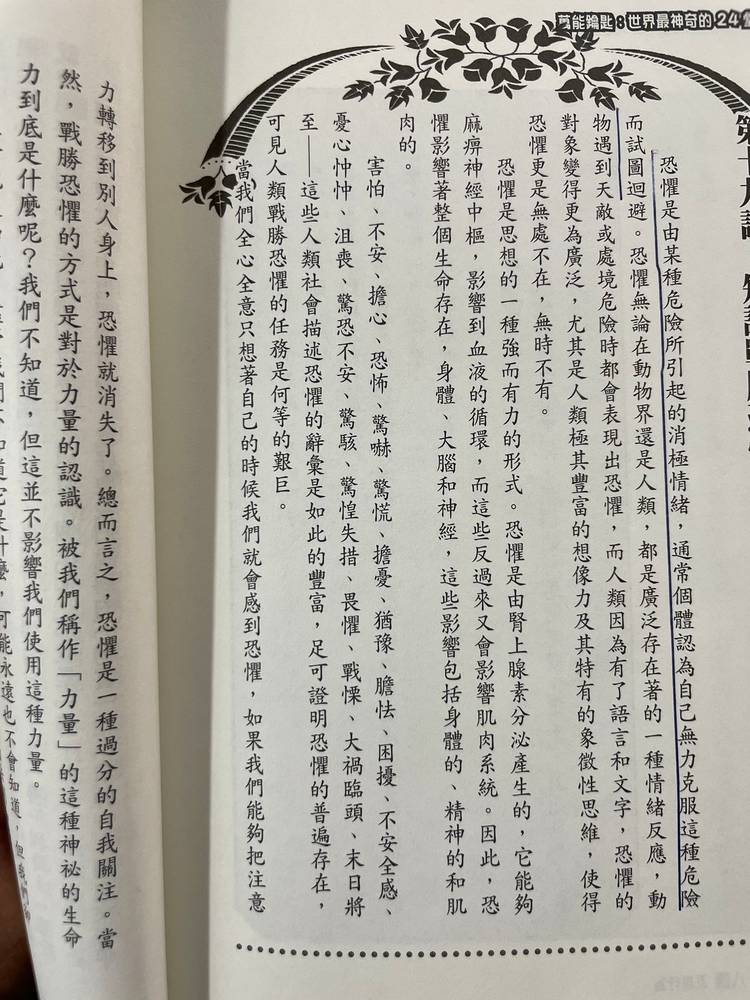 萬能鑰匙：世界最神奇的24
恐懼是由某種危險所引起的消極情緒，通常個體認為自己無力克服這種危險
而試圖迴避。恐懼無論在動物界還是人類，都是廣泛存在著的一種情緒反應，動
物遇到天敵或處境危險時都會表現出恐懼，而人類因為有了語言和文字，恐懼的
對象變得更為廣泛，尤其是人類極其豐富的想像力及其特有的象徵性思維，使得
恐懼更是無處不在，無時不有。
恐懼是思想的一種強而有力的形式。恐懼是由腎上腺素分泌產生的，它能夠
麻痹神經中樞，影響到血液的循環，而這些反過來又會影響肌肉系統。因此，恐
懼影響著整個生命存在，身體、大腦和神經，這些影響包括身體的、精神的和肌
肉的。
害怕、不安、擔心、恐怖、驚嚇、驚慌、擔憂、猶豫、膽怯、困擾、不安全感、
憂心忡忡、沮喪、驚恐不安、驚駭、驚惶失措、畏懼、戰慄、大禍臨頭、末日將
至——這些人類社會描述恐懼的辭彙是如此的豐富，足可證明恐懼的普遍存在，
可見人類戰勝恐懼的任務是何等的艱巨。
當我們全心全意只想著自己的時候我們就會感到恐懼，如果我們能夠把注意
力轉移到別人身上，恐懼就消失了。總而言之，恐懼是一種過分的自我關注。當
然，戰勝恐懼的方式是對於力量的認識。被我們稱作「力量」的這種神祕的生命
力到底是什麼呢？我們不知道，但這並不影響我們使用這種力量。